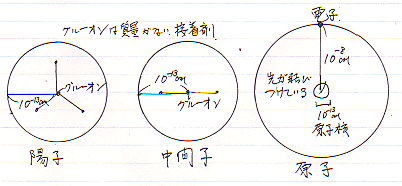 グルーオンは質量がない接着剤
10⁻¹³cm
グルーオン
陽子
10⁻¹³cm
グルーオン
中間子
電子
10⁻⁸cm
光が結び
つけている
10⁻¹³cm
原子核
原子